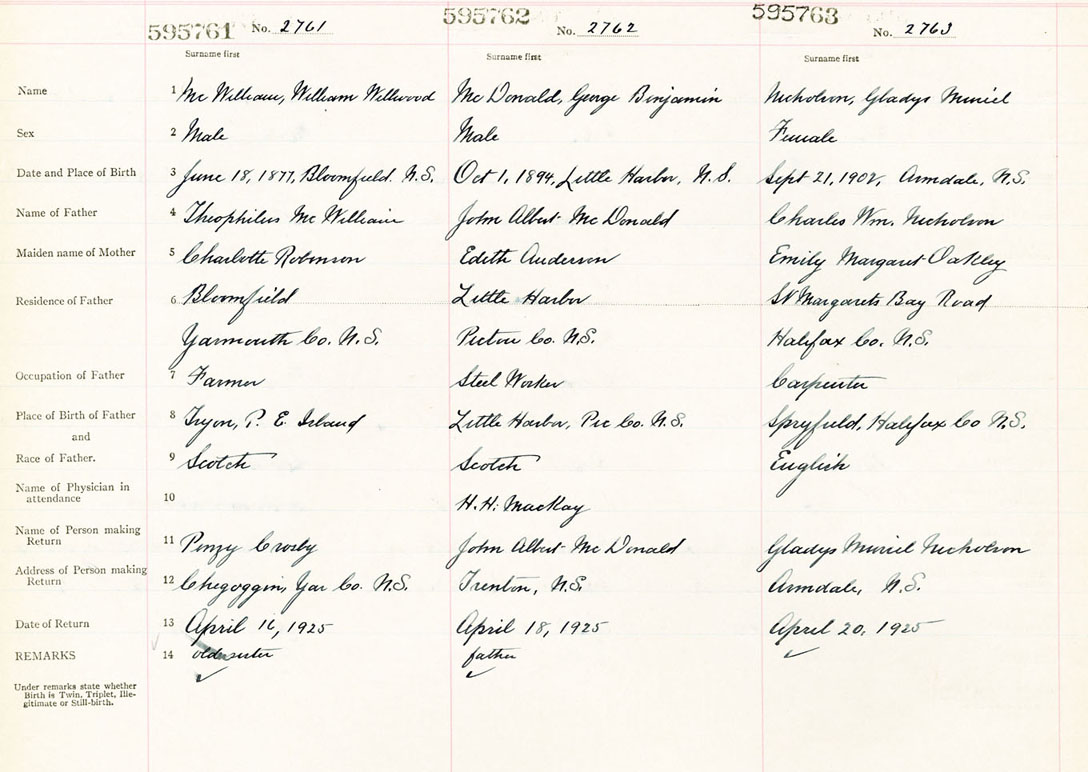 595761 No. 2761 595762 No. 2762 595763 No. 2763
Surname first Surname first Surname first
Name 1 Mc William, William Wellwood Mc Donald, George Benjamin Nicholson, Gladys Muriel
Sex 2 Male Male Female
Date and Place of Birth 3 June 18, 1877, Bloomfield. N.S. Oct 1, 1894, Little Harbor, N.S. Sept 21, 1902, Armdale, N.S.
Name of Father 4 Theophilus Mc William John Albert Mc Donald Charles Wm. Nicholson
Maiden name of Mother 5 Charlotte Robinson Edith Anderson Emily Margaret Oakley
Residence of Father 6 Bloomfield Little Harbor St Margarets Bay Road
Yarmouth Co. N.S. Pictou Co. N.S. Halifax Co. N.S.
Occupation of Father 7 Farmer Steel Worker Carpenter
Place of Birth of Father 8 Tryon, P. E. Island Little Harbor, Pic Co. N.S. Spryfield, Halifax Co N.S.
and
Race of Father. 9 Scotch Scotch English
Name of Physician in
attendance 10 H. H. MacKay
Name of Person making
Return 11 Crosby John Albert Mc Donald Gladys Muriel Nicholson
Address of Person making
Return 12 Chegoggin, Yar Co. N.S. Trenton, N.S. Armdale, N.S.
Date of Return 13 April 16, 1925 April 18, 1925 April 20, 1925
REMARKS 14 old sister father
Under remarks state whether
Birth is Twin, Triplet, Ille-
gitimate or Still-birth.